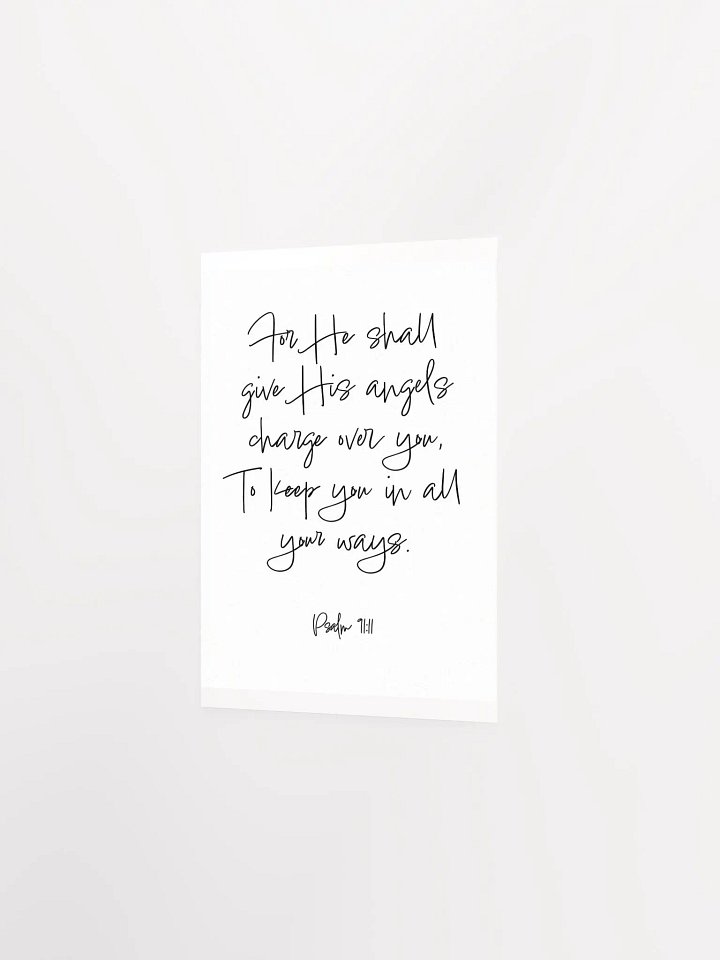 For He shall
give His angels
charge over you,
To keep you in all
your ways.
Psalm 91:11